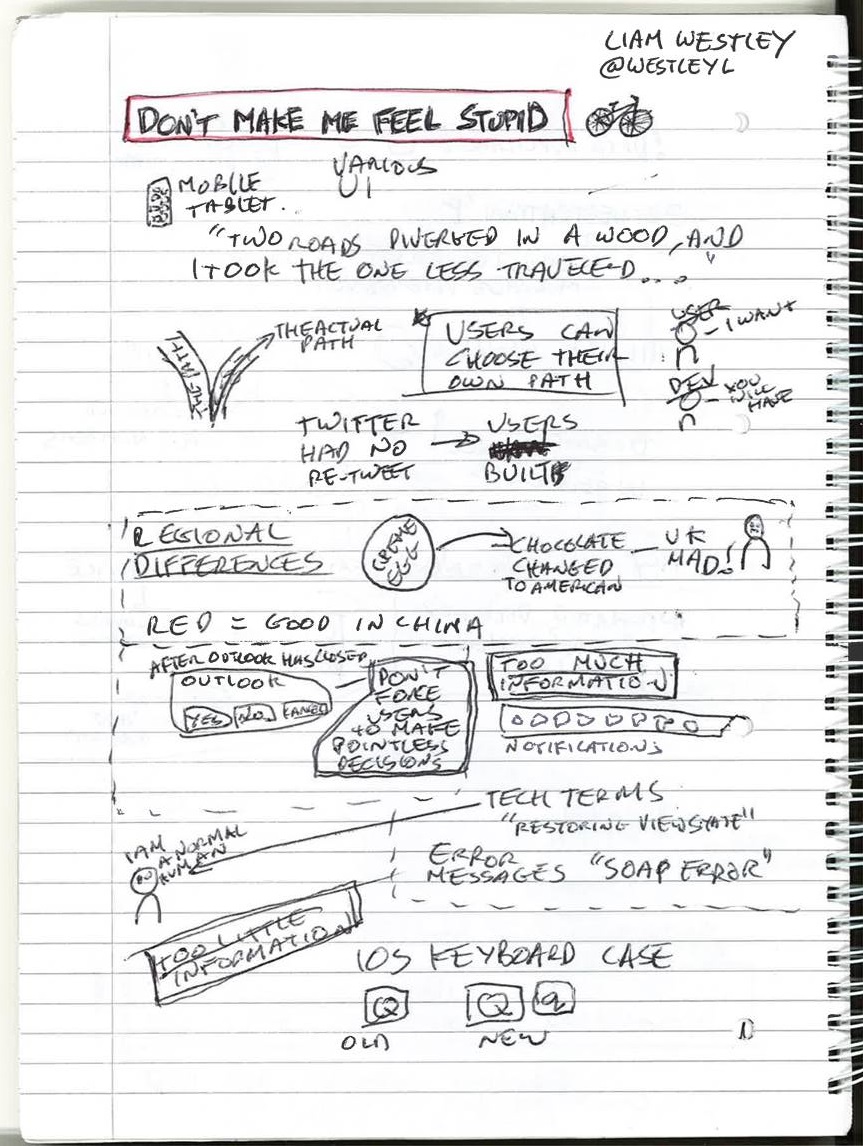 LIAM WESTLEY
@WESTLEYL
DON'T MAKE ME FEEL STUPID
MOBILE
TABLET.
VARIOUS
UI
"TWO ROADS DIVERGED IN A WOOD, AND
I TOOK THE ONE LESS TRAVELED...."
THE PATH
THE ACTUAL
PATH
USERS CAN
CHOOSE THEIR
OWN PATH
USER
- I WANT
DEV
- YOU
WILL
HAVE
TWITTER
HAD NO
RE-TWEET
USERS
BUILT
REGIONAL
DIFFERENCES
CREME
EGG
CHOCOLATE
CHANGED
TO AMERICAN
UK
MAD!
RED = GOOD IN CHINA
AFTER OUTLOOK HAS CLOSED
OUTLOOK
YES NO CANCEL
DON'T
FORCE
USERS
TO MAKE
POINTLESS
DECISIONS
TOO MUCH
INFORMATION
NOTIFICATIONS
TECH TERMS
"RESTORING VIEWSTATE"
I AM
A NORMAL
HUMAN
ERROR
MESSAGES "SOAP ERROR"
TOO LITTLE
INFORMATION
IOS KEYBOARD CASE
Q
OLD
Q q
NEW
1